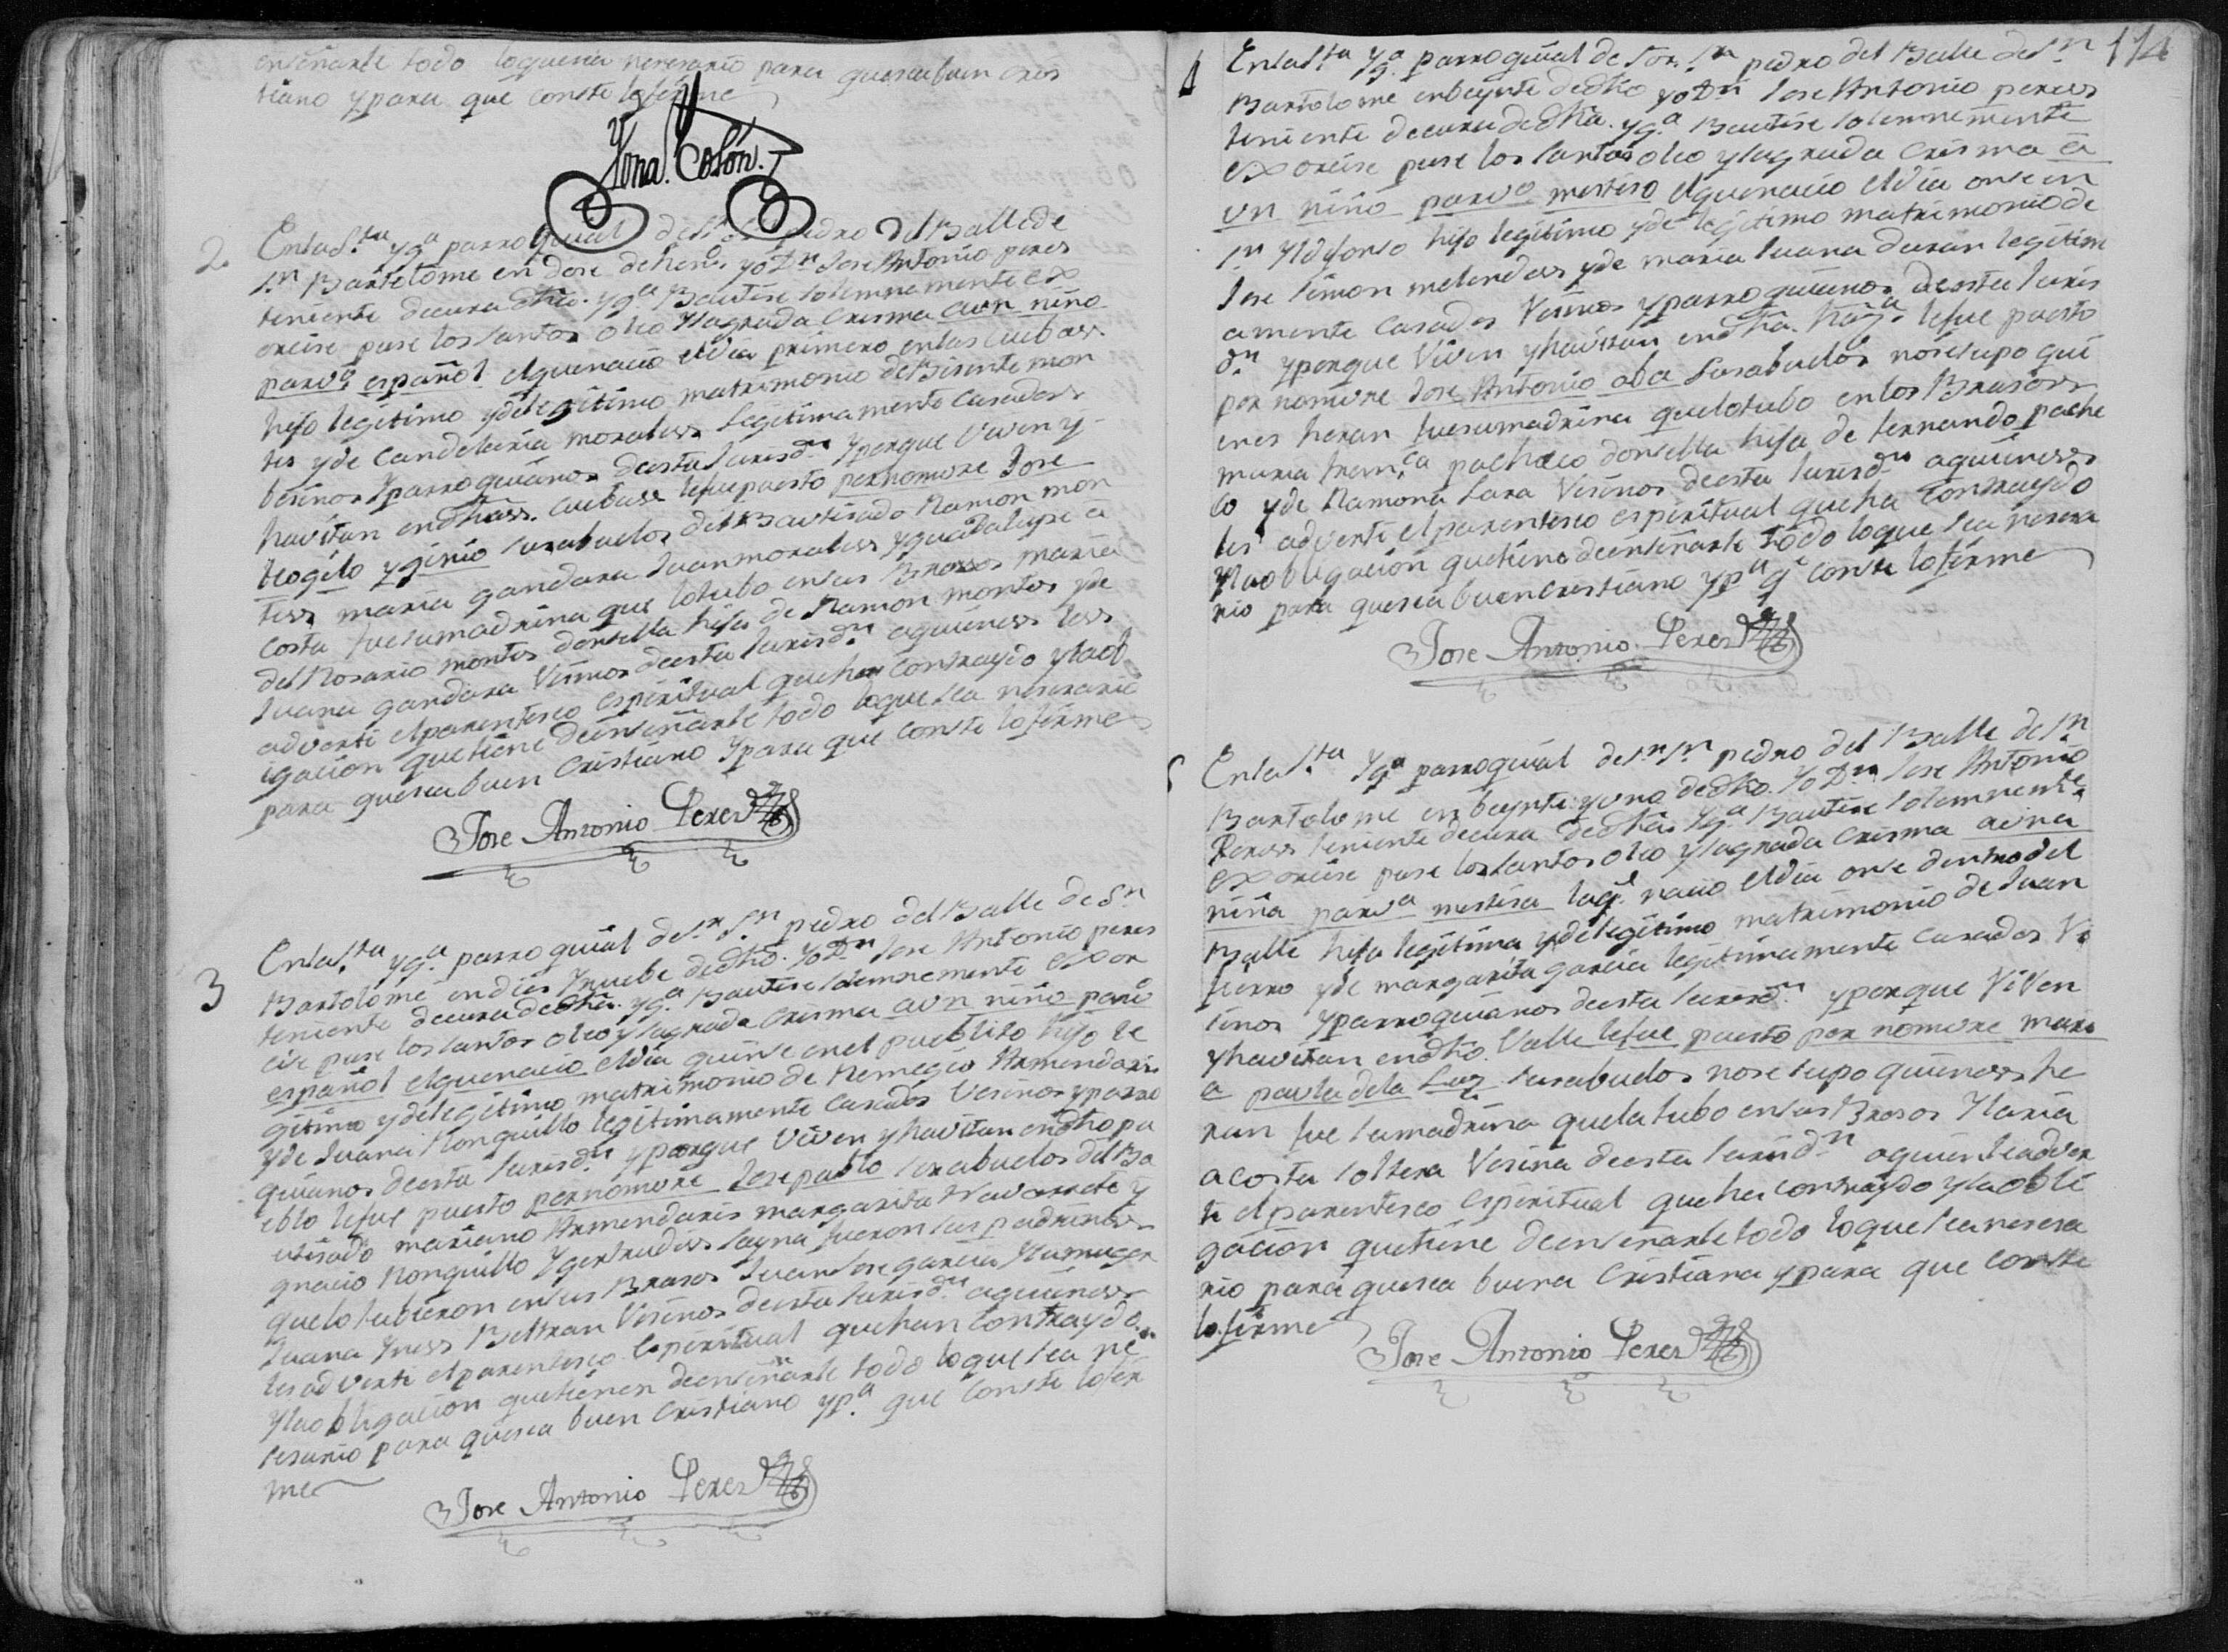 enseñarle todo loquesea nesesario para queseabuen cris
tiano ypara que conste lofirme
Ygna. Colón.
2. Enlasta. yga. parroquial de Sor. Sn pedro del Balle de
Sn. Bartolome en dose de henº. yo Dn Jose Antonio peres
teniente decura dha. yga. Bautise solemnemente ex
orcise puse los santos oleo ysagrada crisma aun niño
parvº español elquenacio eldia primero enlas cuebas
hijo legitimo ydelegitimo matrimonio deBisente mon
tes yde Candelaria morales legitimamente casados
besinos yparroquianos deesta Jurisdn. yporque viven y
havitan endhas. cuebas lefuepuesto pornomvre Jose
teogilo yginio susabuelos delBautisado Ramon mon
tes maria gandara Juan morales yguadalupe a
costa fuesumadrina que lotubo ensus Brasos maria
del Rosario montes donsella hija de Ramon montes yde
Juana gandara Vesinos deesta Jurisdn. aquienes les
adverti elparentesco espiritual queha contraydo ylaobl
igacion quetiene deenseñarle todo loque sea nesesario
para quesea buen cristiano ypara que conste lofirme
Jose Antonio Peres
3 Enlasta. yga. parroquial de Sr. Sn. pedro del Balle de Sn
Bartolome endies ynuebe dedho. yo Dn Jose Antonio peres
teniente decura dedha. yga. Bautise solemnemente exor
cise puse los santos oleo ysagrada crisma aun niño parvº
español elquenacio eldia quinse enel pueblito hijo le
gitimo ydelegitimo matrimonio de Remegio Armendaris
yde Juana Ronquillo legitimamente casados Vesinos yparro
quianos deesta Jurisdn. yporque viven yhavitan endho pu
eblo lefue puesto pornomvre Josepablo susabuelos delBa
utisado mariano Armendaris margarita Navarrete Y
gnacio Ronquillo ygertrudis fueron sus padrinos
quelotubieron ensus Brasos JuanJose garcia ysumuger
Juana Ynes Beltran Vesinos deesta Jurisdn. aquienes
lesadverti elparentesco espiritual quehan contraydo
ylaobligacion quetienen deenseñarle todo loque sea ne
sesario para quesea buen cristiano ypa. que conste lofir
me
Jose Antonio Peres
174
4 Enlasta Yga. parroquial de Sor. Sn pedro del Balle de Sn
Bartolome enbeynte dedho yo Dn Jose Antonio peres
teniente decura dedha. yga. Bautise solemnemente
exorcise puse los santos oleo ysagrada crisma a
un niño parvº mestiso elquenacio eldia onse en
Sn Yldefonso hijo legitimo yde legitimo matrimonio de
Jose Simon melendes yde maria Juana duran legitim
amente casados Vesinos yparroquianos deesta Juris
dn. yporque Viven yhavitan endha. hasa. lefue puesto
por nomvre Jose Antonio susabuelos nosesupo qui
enes heran fuesumadrina quelotubo enlos Brasos
maria franca. pacheco donsella hija de fernando pache
co yde Ramona Lara Vesinos deesta Jurisdn aquienes
les adverti elparentesco espiritual queha contraydo
ylaobligacion quetiene deenseñarle todo loque sea nesesa
rio para quesea buencristiano ypa qe conste lofirme
Jose Antonio Peres
5 Enlasta Yga parroquial de Sr. Sn pedro del Balle de Sn
Bartolome en beynte yuno dedho. Yo Dn Jose Antonio
Peres teniente decura dedha. yga. Bautise solemnemte.
exorcise puse lossantos oleo ysagrada crisma auna
niña parva mestisa laqe. nacio eldia onse dentrodel
Balle hija legitima ydelegitimo matrimonio de Juan
fierro yde margarita garcia legitimamente casados Ve
sinos yparroquianos deesta Jurisdn yporque Viven
yhavitan endho. Valle lefue puesto por nomvre mari
a paula dela Luz susabuelos nose supo quienes he
ran fue sumadrina quelatubo ensus Brasos Ylaria
acosta soltera Vesina deesta Jurisdn aquien leadver
ti elparentesco espiritual queha contraydo ylaobli
gacion quetiene deenseñarle todo loque sea nesesa
rio para quesea buena cristiana ypara que conste
lofirme
Jose Antonio Peres